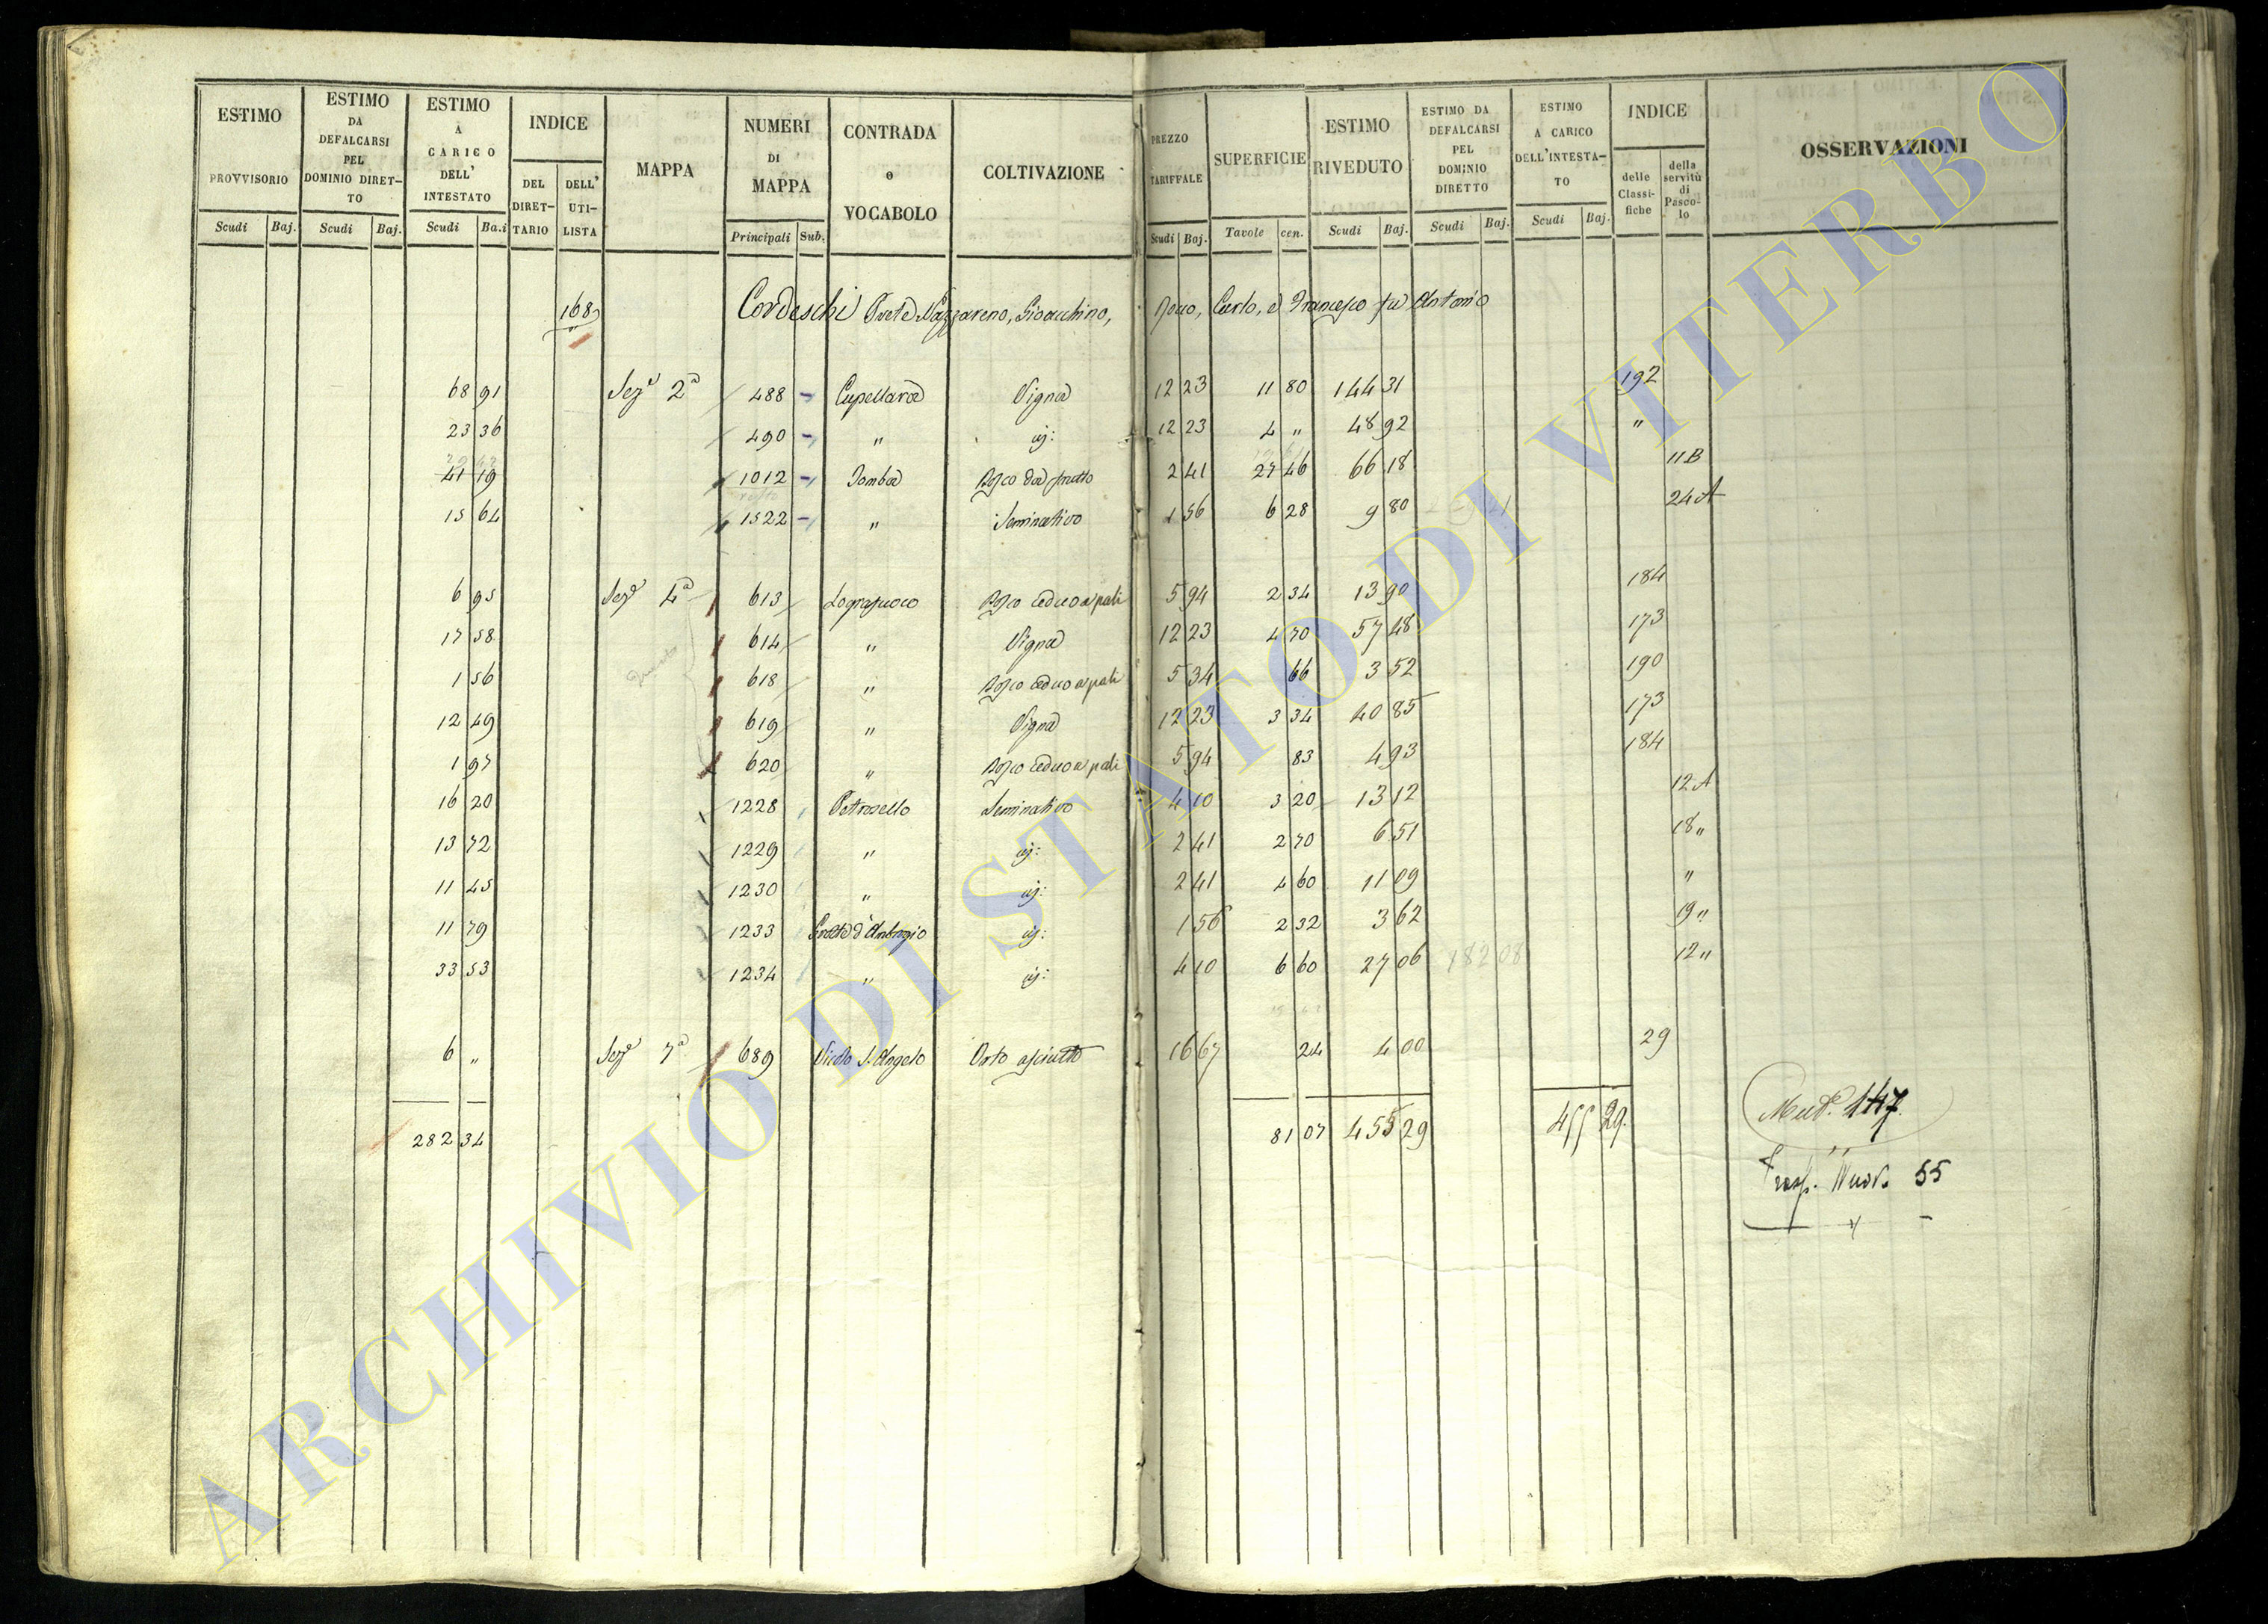 ESTIMO PROVVISORIO Scudi Baj.
ESTIMO DA DEFALCARSI PEL DOMINIO DIRETTO Scudi Baj.
ESTIMO A CARICO DELL' INTESTATO Scudi Ba.i
INDICE DEL DIRETTARIO DELL' UTILISTA
MAPPA
NUMERI DI MAPPA Principali Sub.
CONTRADA o VOCABOLO
COLTIVAZIONE
PREZZO TARIFFALE Scudi Baj.
SUPERFICIE Tavole cen.
ESTIMO RIVEDUTO Scudi Baj.
ESTIMO DA DEFALCARSI PEL DOMINIO DIRETTO Scudi Baj.
ESTIMO A CARICO DELL'INTESTATO Scudi Baj.
INDICE delle Classifiche della servitù di Pascolo
OSSERVAZIONI
168 Cordeschi Prete Nazzareno, Gioacchino, Rocco, Carlo, e Francesco fu Antonio
68 91 Seze 2a 488 Cupellara Vigna 12 23 11 80 144 31 192
23 36 490 " " 12 23 4 " 48 92 "
41 19 1012 Tomba Bosco da frutto 2 41 27 46 66 18 11 B
15 64 1522 " Seminativo 1 56 6 28 9 80 24 A
6 95 Seze 4a 613 Lografuoco Bosco ceduo a pali 5 94 2 34 13 90 184
17 58 614 " Vigna 12 23 4 70 57 48 173
1 56 618 " Bosco ceduo a pali 5 34 66 3 52 190
12 49 619 " Vigna 12 23 3 34 40 85 173
1 97 620 " Bosco ceduo a pali 5 94 83 4 93 184
16 20 1228 Petrosello Seminativo 4 10 3 20 13 12 12 A
13 72 1229 " 2 41 2 70 6 51 18 "
11 45 1230 " 2 41 4 60 11 09 "
11 79 1233 1 56 2 32 3 62 19 "
33 53 1234 " 4 10 6 60 27 06 182 08 12 "
6 " Seze 7a 689 Vicolo S. Angelo Orto asciutto 16 67 24 4 00 29
282 34 81 07 455 29 455 29
Mut. 147
Trasp. Nuov. 55
ARCHIVIO DI STATO DI VITERBO